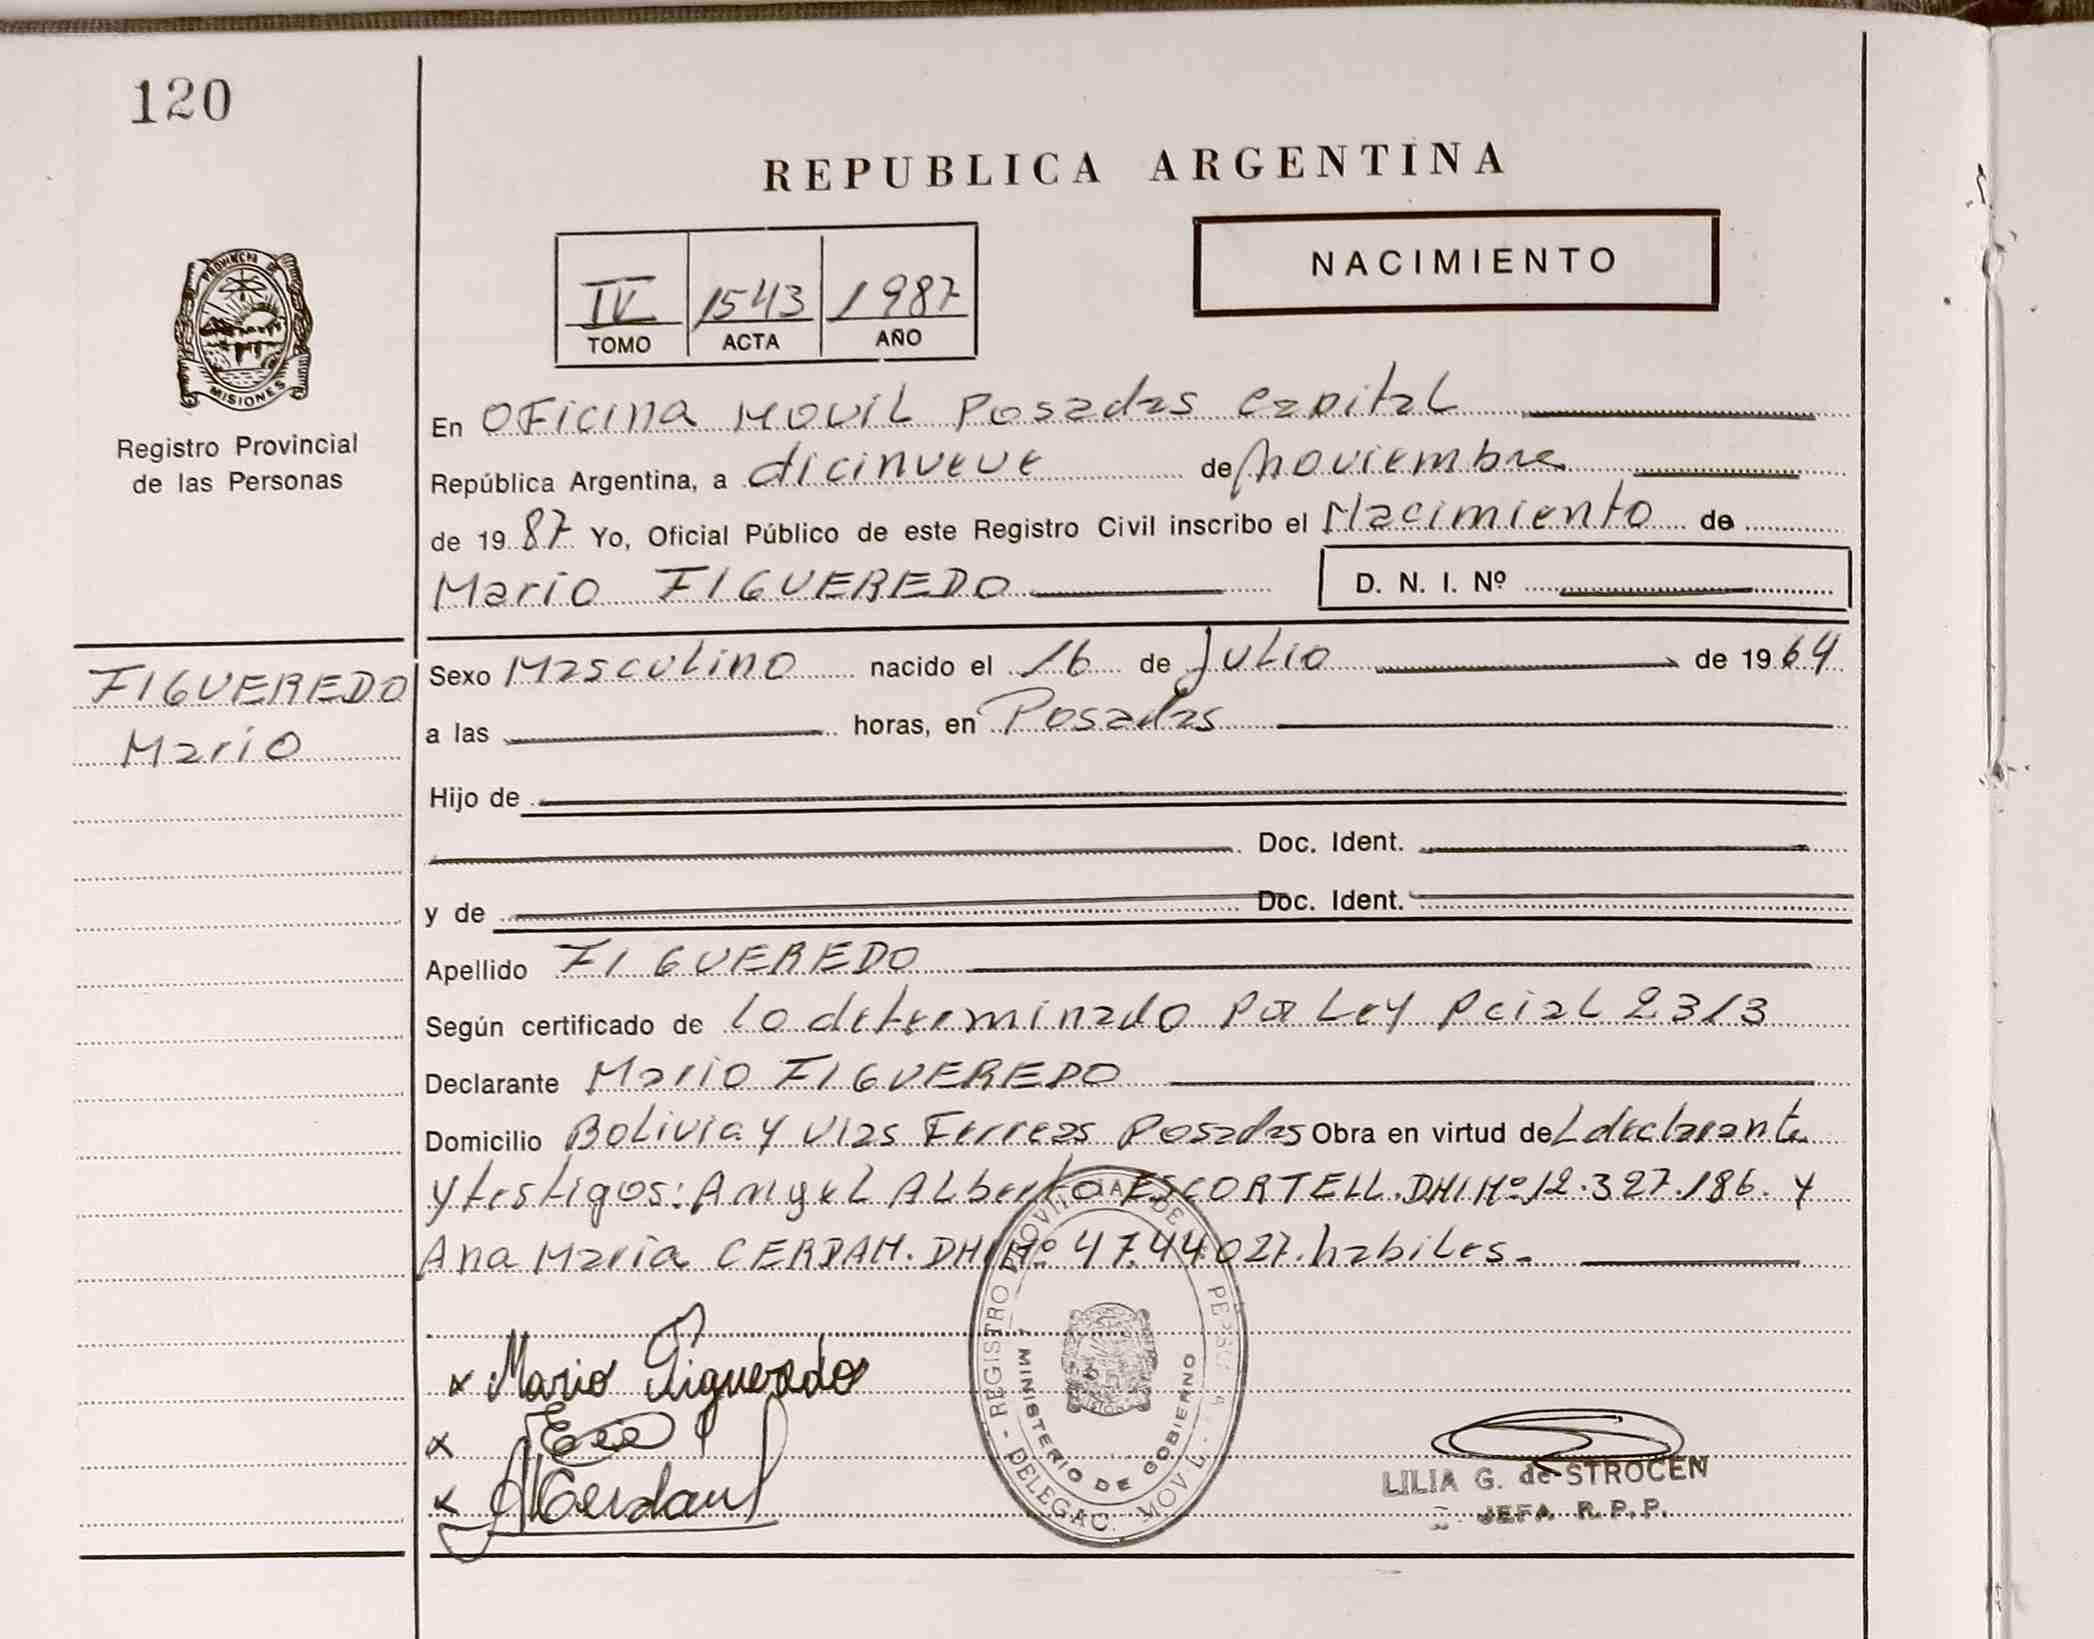 120
REPUBLICA ARGENTINA
PROVINCIA DE
MISIONES
Registro Provincial
de las Personas
IV 1543 1987
TOMO ACTA AÑO
NACIMIENTO
En OFicina Movil Posadas capital
República Argentina, a dicinueve de noviembre
de 1987 Yo, Oficial Público de este Registro Civil inscribo el Nacimiento de
Mario FIGUEREDO D. N. I. Nº
FIGUEREDO
Mario
Sexo Masculino nacido el 16 de Julio de 1964
a las horas, en Posadas
Hijo de
Doc. Ident.
y de Doc. Ident.
Apellido FIGUEREDO
Según certificado de lo determinado por Ley Pcial 2313
Declarante Mario FIGUEREDO
Domicilio Bolivia y vias Ferreas Posadas Obra en virtud del declarante
y testigos: Angel Alberto ESCORTELL. DNI Nº 12.327.186. y
Ana Maria CERDAN. DNI Nº 4744027. habiles.
x Mario Figueredo
x
x Cerdan
REGISTRO PROVINCIAL DE
MINISTERIO DE GOBIERNO
DELEGAC. MOVIL
LILIA G. de STROCEN
JEFA R.P.P.